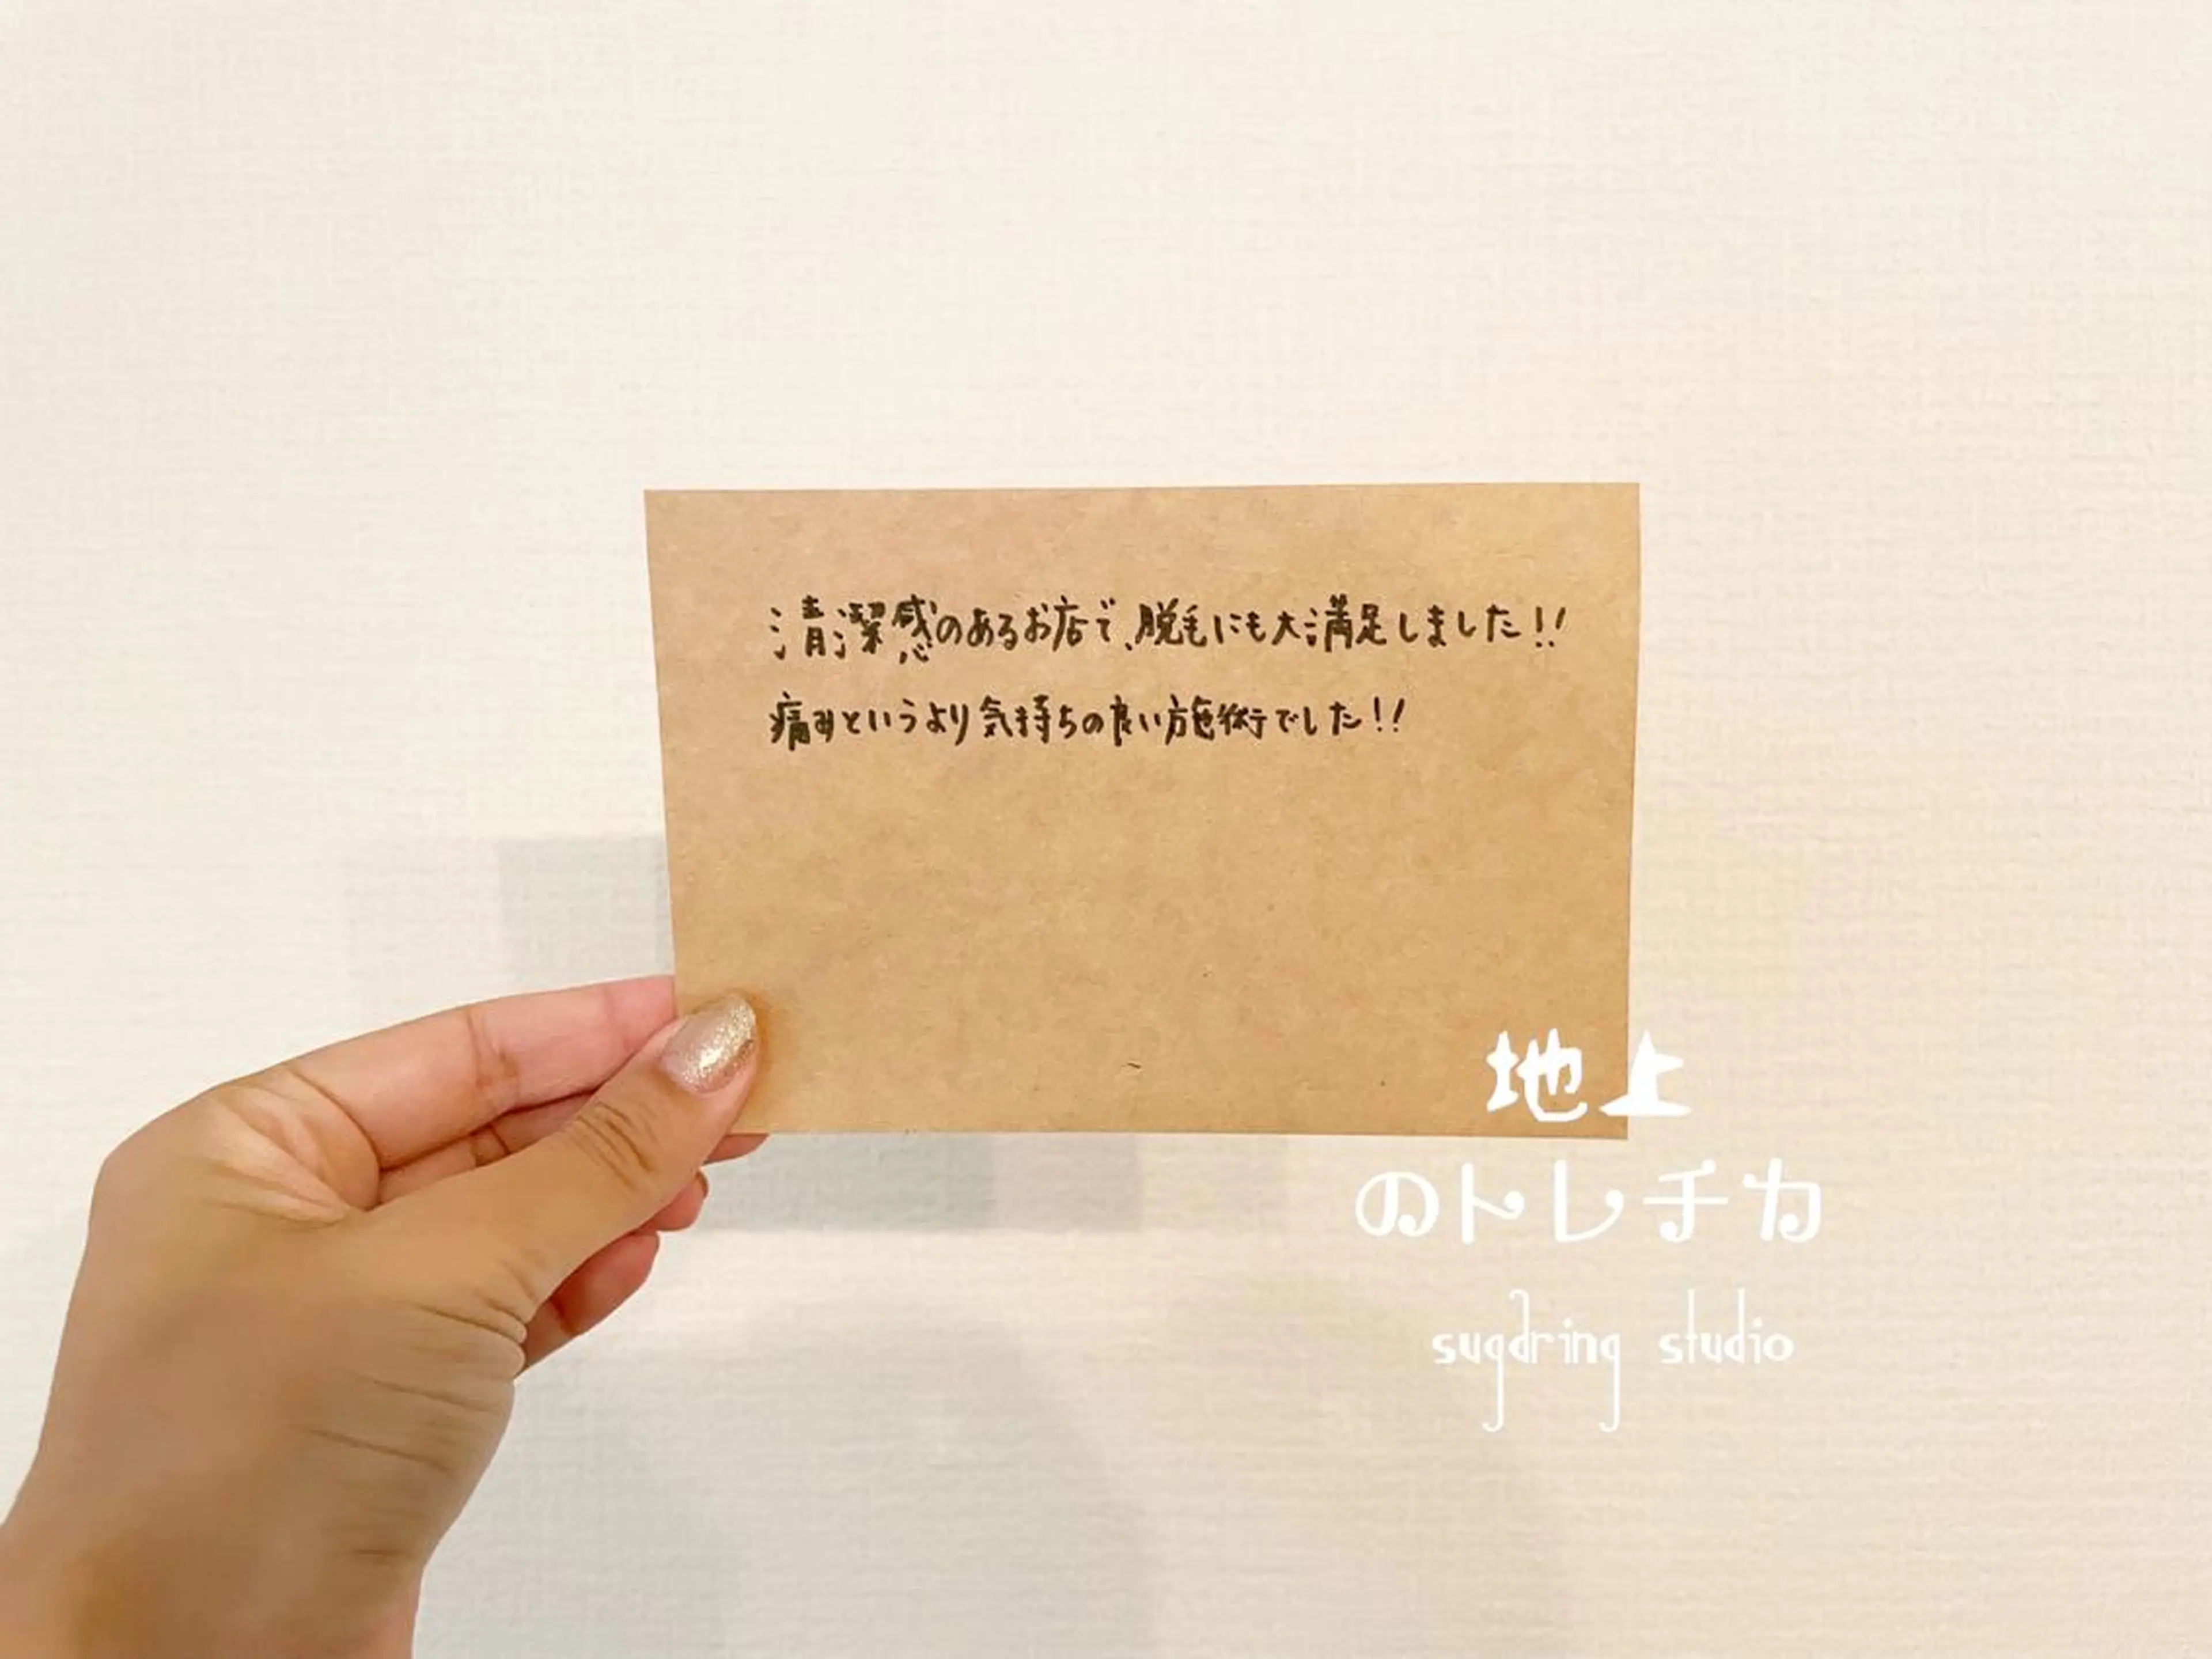 清潔感のあるお店で、脱毛にも大満足しました!!
痛みというより気持ちの良い施術でした!!
地上
のトレチカ
sugaring studio